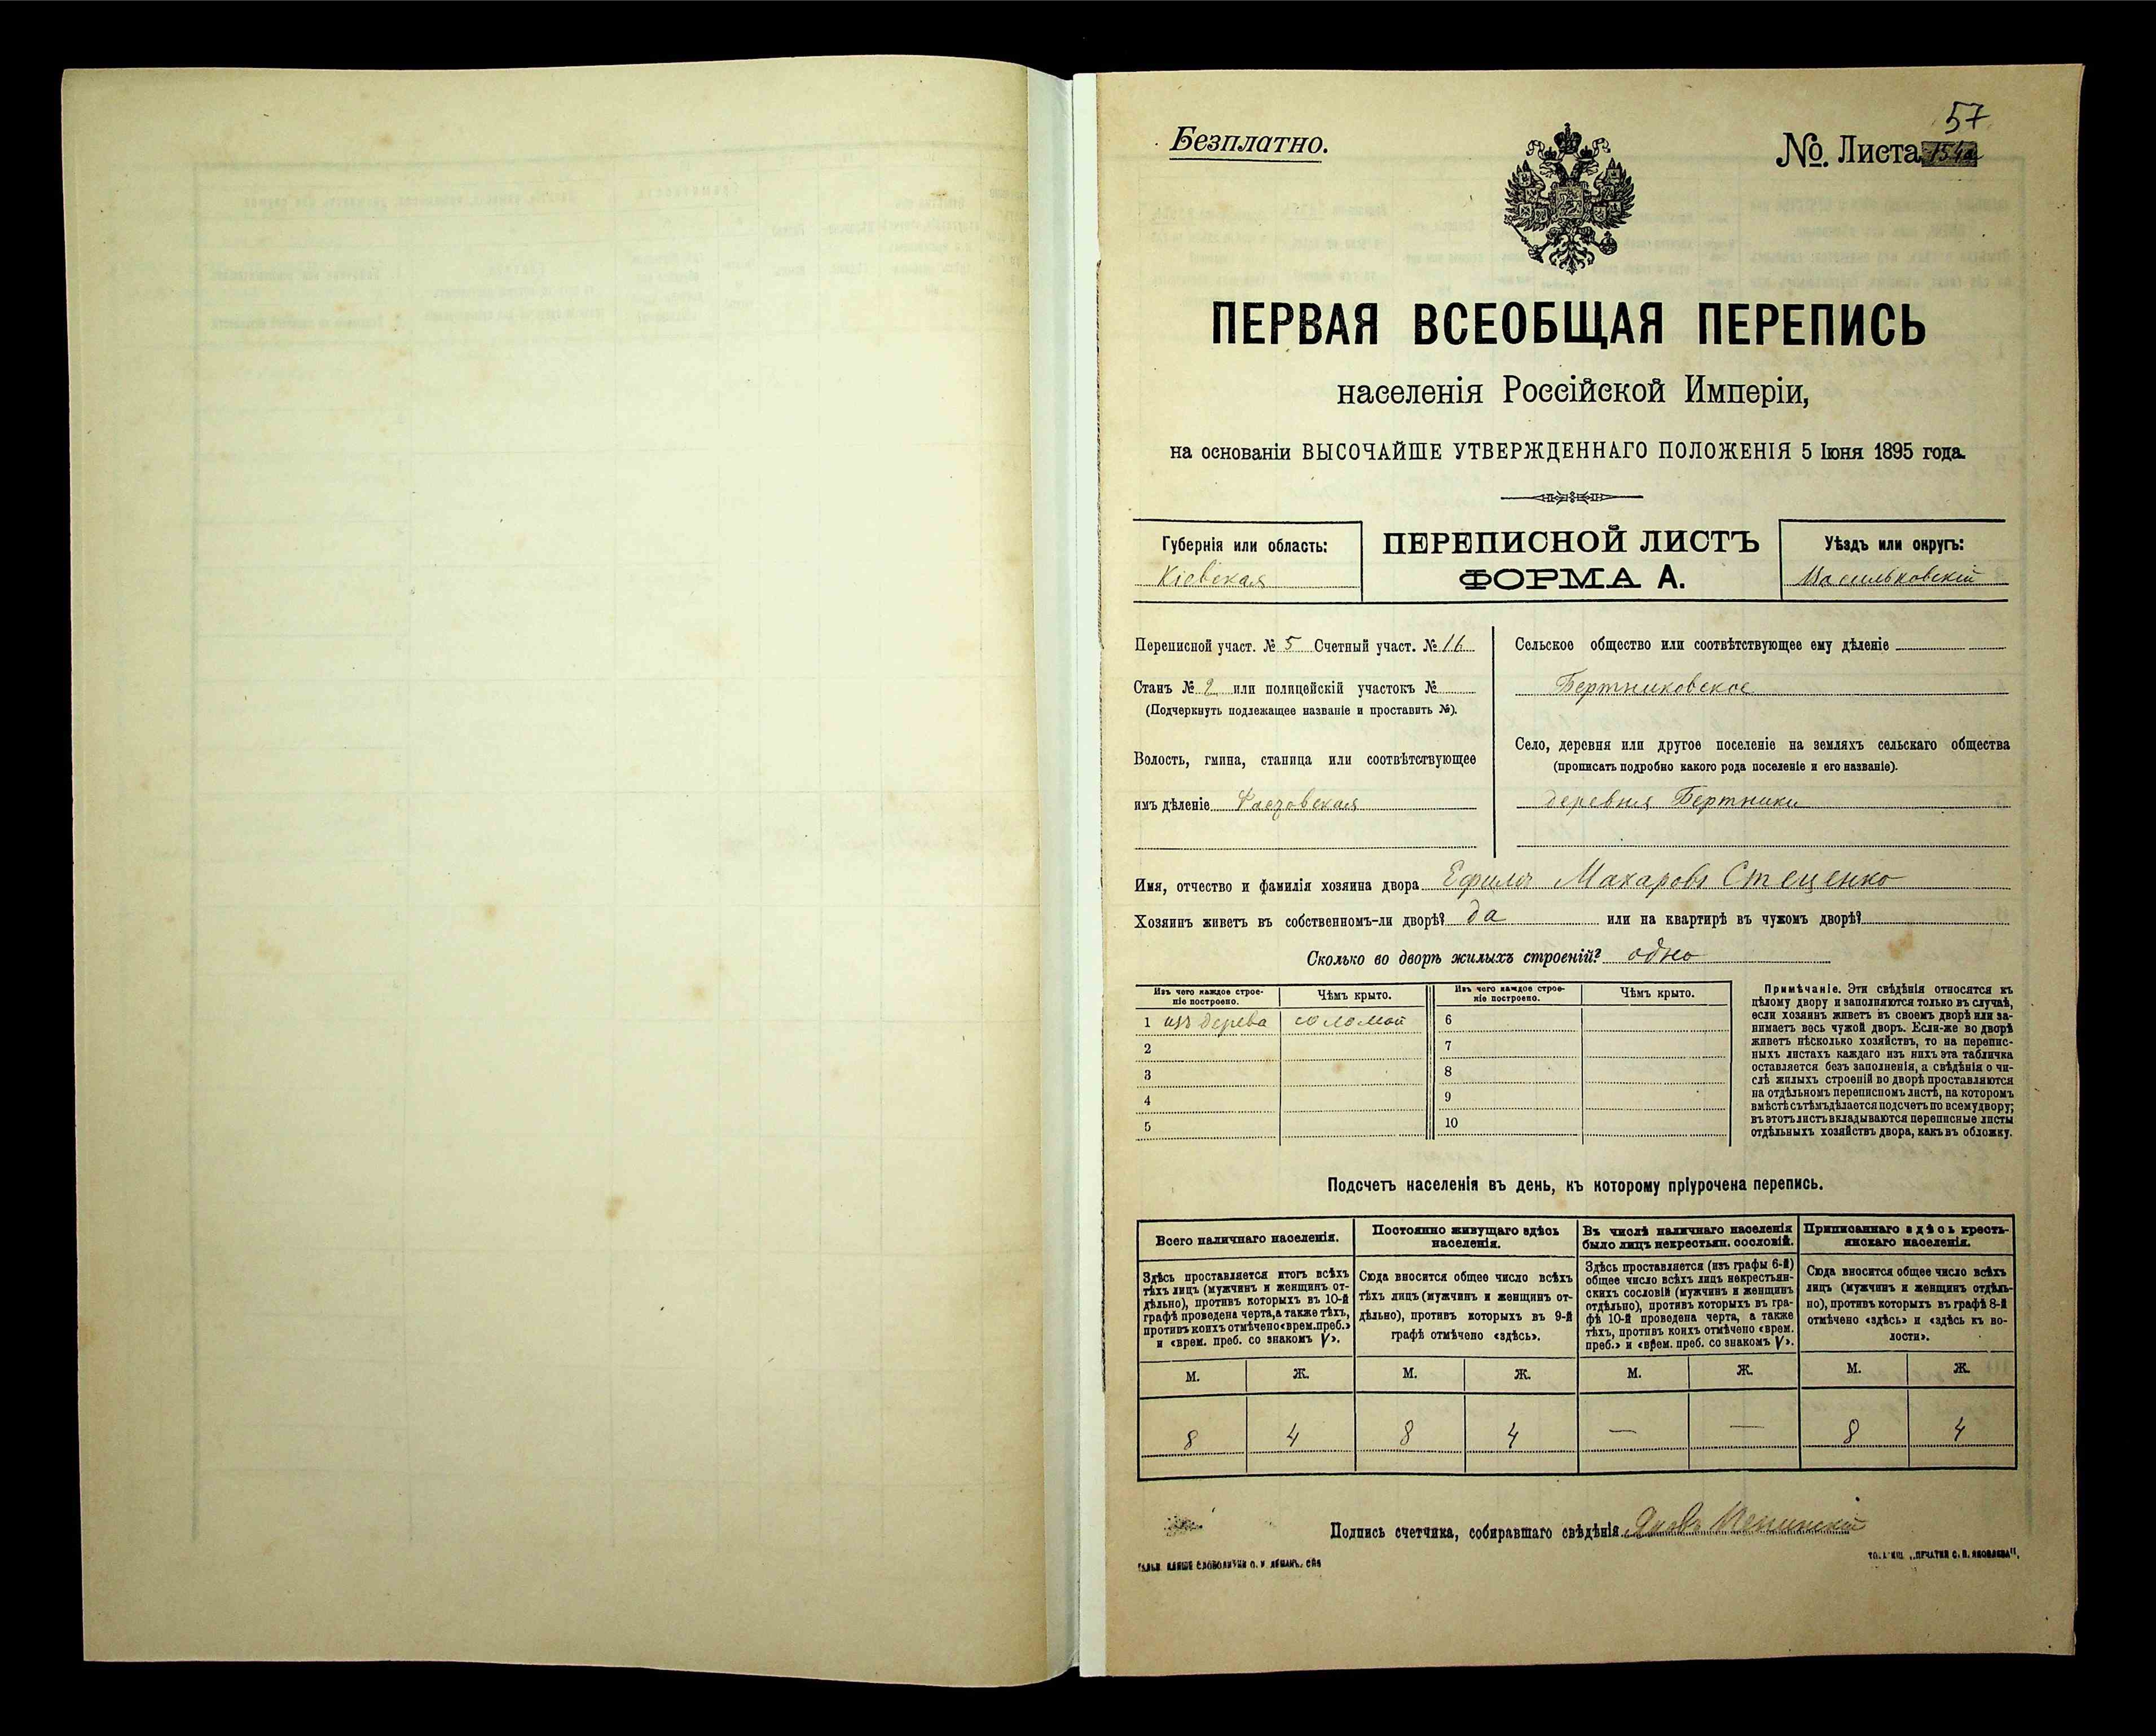 57
Безплатно.
№. Листа
ПЕРВАЯ ВСЕОБЩАЯ ПЕРЕПИСЬ
населенія Россійской Имперіи,
на основаніи ВЫСОЧАЙШЕ УТВЕРЖДЕННАГО ПОЛОЖЕНІЯ 5 Іюня 1895 года.
Губернія или область:
Кіевская
ПЕРЕПИСНОЙ ЛИСТЪ
ФОРМА А.
Уѣздъ или округъ:
Васильковскій
Переписной участ. № 5 Счетный участ. № 16
Станъ № 2 или полицейскій участокъ №
(Подчеркнуть подлежащее названіе и проставить №).
Волость, гмина, станица или соотвѣтствующее
имъ дѣленіе Фастовская
Сельское общество или соотвѣтствующее ему дѣленіе
Бертниковское
Село, деревня или другое поселеніе на земляхъ сельскаго общества
(прописать подробно какого рода поселеніе и его названіе).
деревня Бертники
Имя, отчество и фамилія хозяина двора Ефимъ Макаровъ Стеценко
Хозяинъ живетъ въ собственномъ-ли дворѣ? да или на квартирѣ въ чужомъ дворѣ?
Сколько во дворѣ жилыхъ строеній? одно
Изъ чего каждое строе-
ніе построено.
Чѣмъ крыто.
Изъ чего каждое строе-
ніе построено.
Чѣмъ крыто.
1 изъ дерева соломой 6
2 7
3 8
4 9
5 10
Примѣчаніе. Эти свѣдѣнія относятся къ
цѣлому двору и заполняются только въ случаѣ,
если хозяинъ живетъ въ своемъ дворѣ или за-
нимаетъ весь чужой дворъ. Если-же во дворѣ
живетъ нѣсколько хозяйствъ, то на перепис-
ныхъ листахъ каждаго изъ нихъ эта табличка
оставляется безъ заполненія, а свѣдѣнія о чи-
слѣ жилыхъ строеній во дворѣ проставляются
на отдѣльномъ переписномъ листѣ, на которомъ
вмѣстѣ съ тѣмъ дѣлается подсчетъ по всему двору;
въ этотъ листъ вкладываются переписные листы
отдѣльныхъ хозяйствъ двора, какъ въ обложку.
Подсчетъ населенія въ день, къ которому пріурочена перепись.
Всего наличнаго населенія.
Здѣсь проставляется итогъ всѣхъ
тѣхъ лицъ (мужчинъ и женщинъ от-
дѣльно), противъ которыхъ въ 10-й
графѣ проведена черта, а также тѣхъ,
противъ коихъ отмѣчено «врем. преб.»
и «врем. преб. со знакомъ V».
Постоянно живущаго здѣсь
населенія.
Сюда вносится общее число всѣхъ
тѣхъ лицъ (мужчинъ и женщинъ от-
дѣльно), противъ которыхъ въ 9-й
графѣ отмѣчено «здѣсь».
Въ числѣ наличнаго населенія
было лицъ некрестьян. сословій.
Здѣсь проставляется (изъ графы 6-й)
общее число всѣхъ лицъ некрестьян-
скихъ сословій (мужчинъ и женщинъ
отдѣльно), противъ которыхъ въ гра-
фѣ 10-й проведена черта, а также
тѣхъ, противъ коихъ отмѣчено «врем.
преб.» и «врем. преб. со знакомъ V».
Приписаннаго здѣсь кресть-
янскаго населенія.
Сюда вносится общее число всѣхъ
лицъ (мужчинъ и женщинъ отдѣль-
но), противъ которыхъ въ графѣ 8-й
отмѣчено «здѣсь» и «здѣсь къ во-
лости».
М. Ж. М. Ж. М. Ж. М. Ж.
8 4 8 4 — — 8 4
Подпись счетчика, собиравшаго свѣдѣнія Яковъ